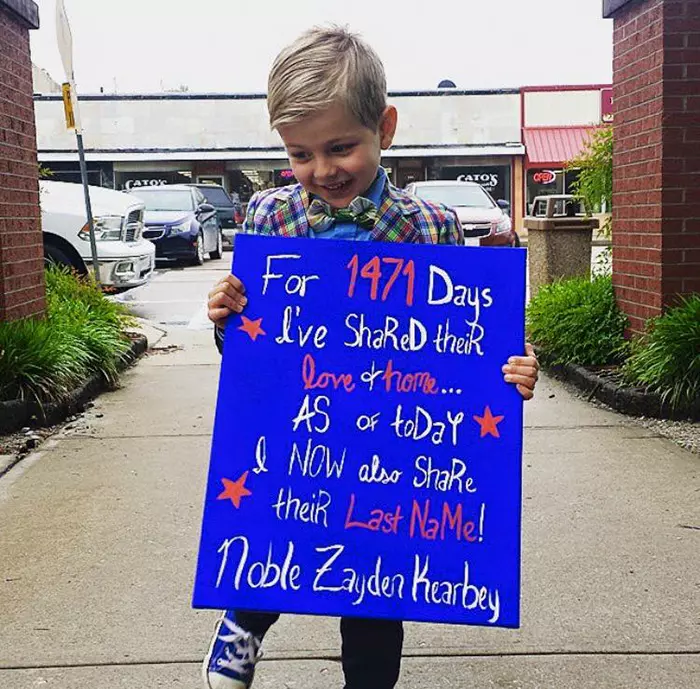 CATO'S
OPEN
CATO'S
OPEN
For 1471 Days
I've ShaReD theiR
love & home...
AS oF toDaY
I NOW also ShaRe
theiR Last NaMe!
Noble Zayden Kearbey